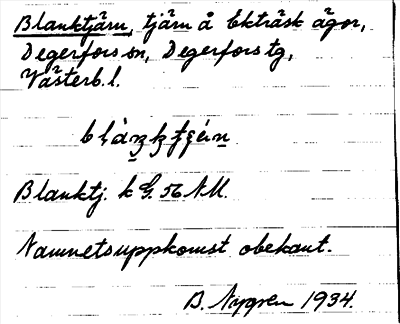 Blanktjärn, tjärn å Ekträsk ägor,
Degerfors sn, Degerfors tg,
Västerb. l.
Blanktj. k G. 56 NM.
Namnets uppkomst obekant.
B. Nygren 1934.